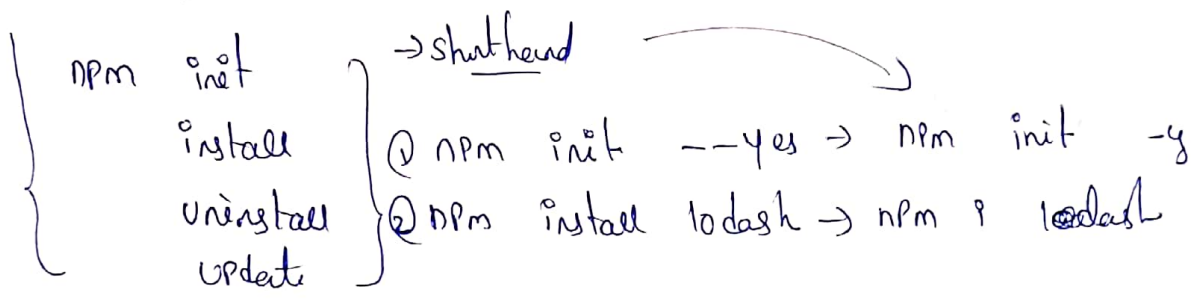 npm init
install
uninstall
update
→ shorthand
① npm init --yes → npm init -y
② npm install lodash → npm i lodash